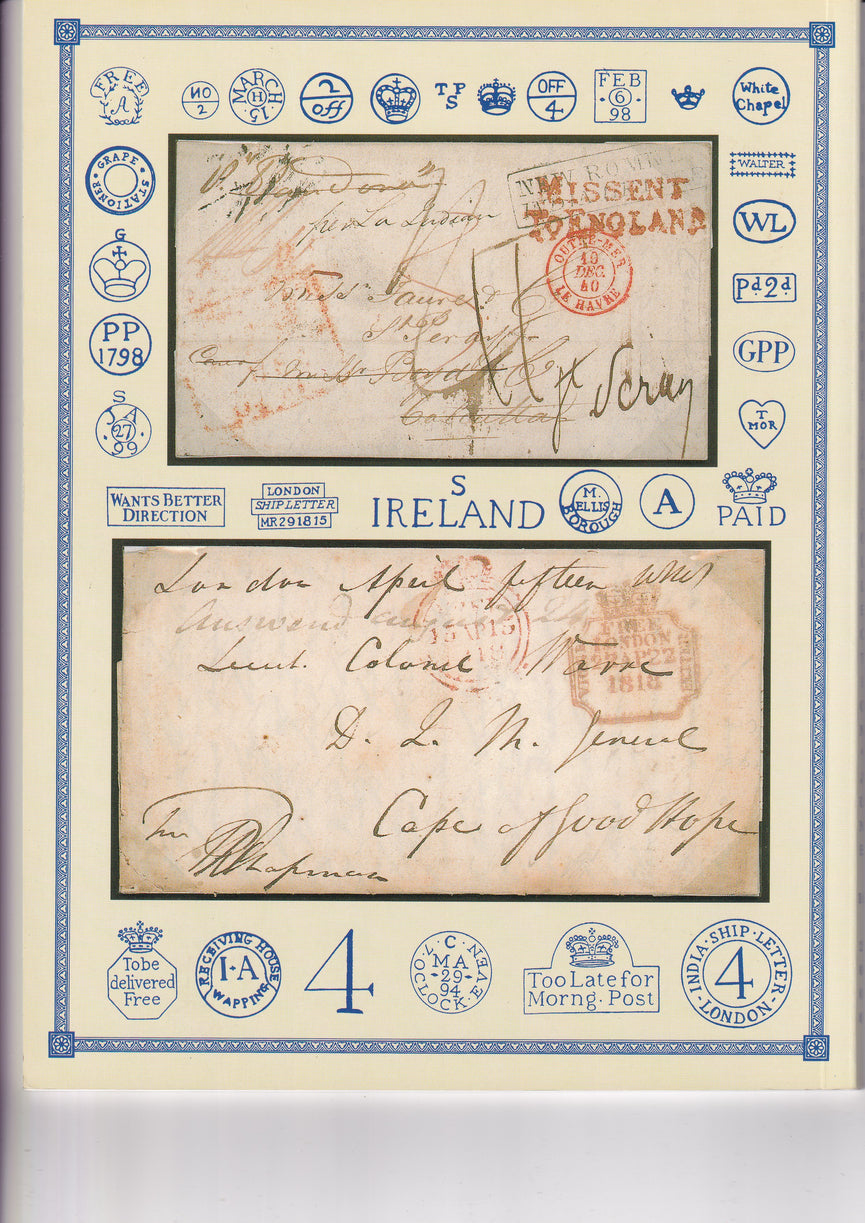 FREE
A
NO
2
MARCH·15
H
2
off
T P
S
OFF
4
FEB
·6·
98
White
Chapel
GRAPE · STATIONER ·
WALTER
G
WL
Pd2d
PP
1798
GPP
S
JA
·27·
99
T
MOR
MISSENT
TO ENGLAND
OUTRE-MER
10
DEC
40
LE HAVRE
per La Indian
Calcutta
WANTS BETTER
DIRECTION
LONDON
SHIP LETTER
MR291815
S
IRELAND
M.
AELLIS
BOROUGH
A
PAID
London April fifteen
Answered august 24
15AP15
Lieut. Colonel Warre
FREE
LONDON
AP22
1818
D. Q. M. General
Cape of Good Hope
Chapman
To be
delivered
Free
RECEIVING HOUSE
I·A
WAPPING
4
·C·
MA
·29·
94
7·OCLOCK·EVEN
Too Late for
Morng·Post
INDIA·SHIP·LETTER
4
·LONDON·